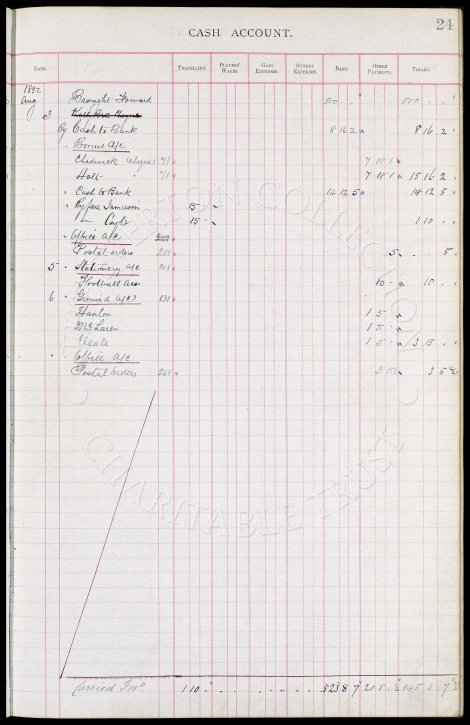 24
CASH ACCOUNT.
DATE. TRAVELLING. PLAYERS' WAGES. GATE EXPENSES. SUNDRY EXPENSES. BANK. OTHER PAYMENTS. TOTALS.
1892
Aug. Brought Forward 500 . . 500 . .
3
By Cash to Bank 8 16 2 8 16 2
" Bonus a/c
Chadwick (cheque) 71 7 18 1
Holt 71 7 18 1 15 16 2
" Cash to Bank 14 12 5 14 12 5
" By fare Jamieson 15 -
" Coyle 15 - 1 10 .
" Office a/c
Postal orders 261 5 . 5
5 " Stationery a/c 201
Football Ass 10 . 10 .
6 " Ground a/c 131
Hanlon 1 5 .
McLaren 1 5 .
1 5 . 3 15 .
" Office a/c
Postal Orders 261 3 5½ 3 5½
Carried For'd 1 10 " 523 8 7 20 5
EVERTON COLLECTION
CHARITABLE TRUST